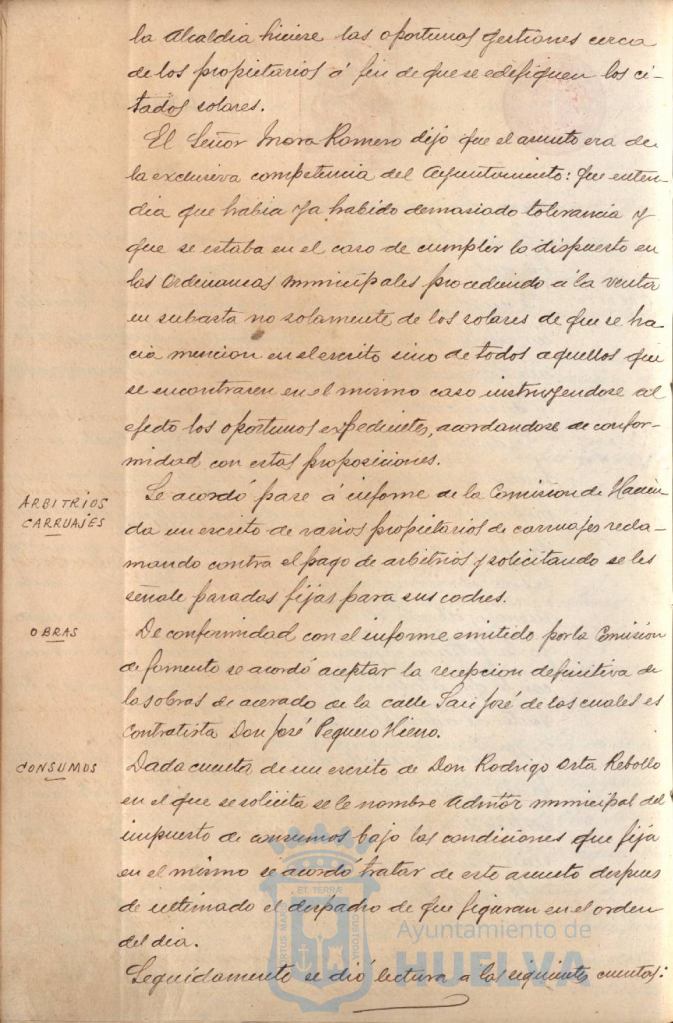 la Alcaldia hiciese las oportunas gestiones cerca
de los propietarios á fin de que se edifiquen los ci-
tados solares.
El Señor Mora Romero dijo que el asunto era de
la exclusiva competencia del Ayuntamiento: que enten-
dia que habia ya habido demasiado tolerancia y
que se estaba en el caso de cumplir lo dispuesto en
las Ordenanzas municipales procediendo á la venta
en subasta no solamente de los solares de que se ha
cia mencion en el escrito sino de todos aquellos que
se encontrasen en el mismo caso instruyendose al
efecto los oportunos expedientes, acordandose de confor-
midad con estas proposiciones.
ARBITRIOS
CARRUAJES
Se acordó pase á informe de la Comision de Hacien-
da un escrito de varios propietarios de carruajes recla-
mando contra el pago de arbitrios y solicitando se les
señale paradas fijas para sus coches.
OBRAS
De conformidad con el informe emitido por la Comision
de fomento se acordó aceptar la recepcion definitiva de
las obras de acerado de la calle San José de las cuales es
contratista Don José Peguero Hierro.
CONSUMOS
Dada cuenta de un escrito de Don Rodrigo Orta Rebollo
en el que se solicita se le nombre Admtor municipal del
impuesto de consumos bajo las condiciones que fija
en el mismo se acordó tratar de este asunto despues
de ultimado el despacho de que figuran en el orden
del dia.
Seguidamente se dió lectura a las siguientes cuentas:
ET TERRÆ
PORTUS MARIS
CUSTODIA
Ayuntamiento de
HUELVA